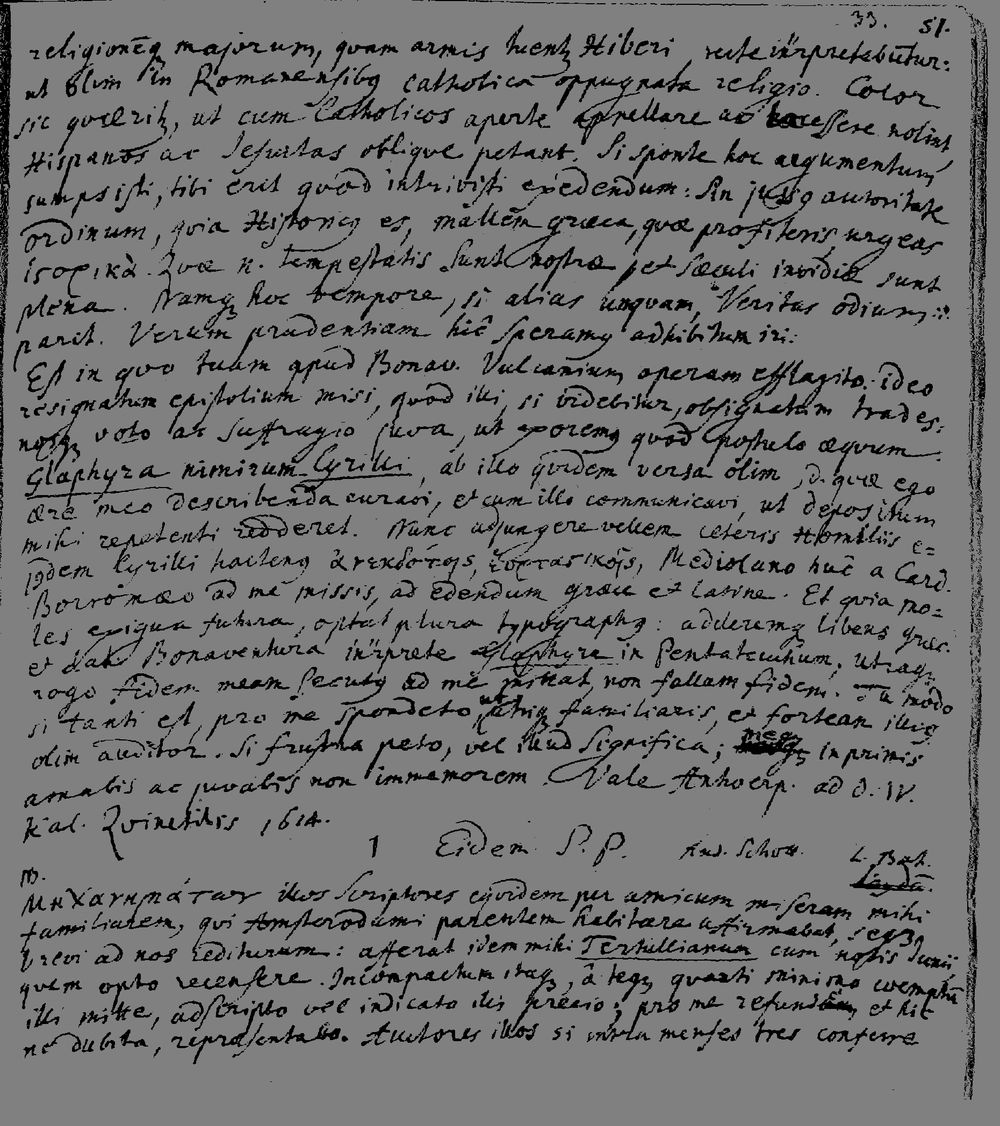 33. 51.
religionēq majorum, quam armis tuentꝫ Hiberi, recte in͂rpretabūtur:
ut olim in Romanensibꝯ catholica oppugnata religio. Color
sic quæritꝫ, ut cum Catholicos aperte appellare ac lacessere nolint,
Hispanos ac Jesuitas oblique petant. Si sponte hoc argumentum
sumpsisti, tibi erit quod intrivisti exedendum: Sin jussꝯ autoritate
ordinum, quia Historicꝯ es, mallem græca, quæ profiteris, urgeas
ἱςορικὰ. Quæ n. tempestatis sunt nostræ et sæculi invidiæ sunt
plena. Namqꝫ hoc tempore, si alias unquam, Veritas odium
parit. Verum prudentiam hic speramꝯ adhibitum iri.
Est in quo tuam apud Bonav. Vulcanium operam efflagito. ideo
resignatum epistolium misi, quod illi, si videbitur, obsignatum trades:
nosqꝫ voto ac suffragio juva, ut exoremꝯ quod postulo æquum.
Glaphyra nimirum Cyrilli, ab illo quidem versa olim, d. quæ ego
ære meo describenda curavi, et cum illo communicavi, ut depositum
mihi repetenti redderet. Nunc adjungere vellem ceteris Homiliis e=
jusdem Cyrilli hactenꝯ ἀνεκδότοις, ἑορταστικοῖς, Mediolano huc a Card.
Borromæo ad me missis, ad edendum græce et latine. Et quia mo=
les exigua futura, optat plura typographꝯ: adderemqꝫ libens græc.
et lat. Bonaventura in͂rprete Glaphyra in Pentateuchum, utraqꝫ
rogo fidem meam secutꝯ ad me mittat, non fallam fidem. Tu modo
si tanti est, pro me spondeto, ut utriqꝫ familiaris, et fortean illiꝯ
olim auditor. Si frustra peto, vel illud significa; meqꝫ inprimis
amabis ac juvabis non immemorem. Vale Antwerp. ad d. IV.
Kal. Quinctilis 1614.
1 Eidem S. P. And. Schott. L. Bat.
Μηχανημάτων illos scriptores ejusdem per amicum miseram mihi
familiarem, qui Amsterodami parentem habitare affirmabat, seqꝫ
brevi ad nos rediturum: afferat idem mihi Tertullianum cum notis Junii,
quem opto recensere. Incompactum itaqꝫ, a teqꝫ quanti minimo coemptū
illi mitte, adscripto vel indicato illi precio; pro me refundam, et hic
ne dubita, repræsentabo. Auctores illos si intra menses tres conferre